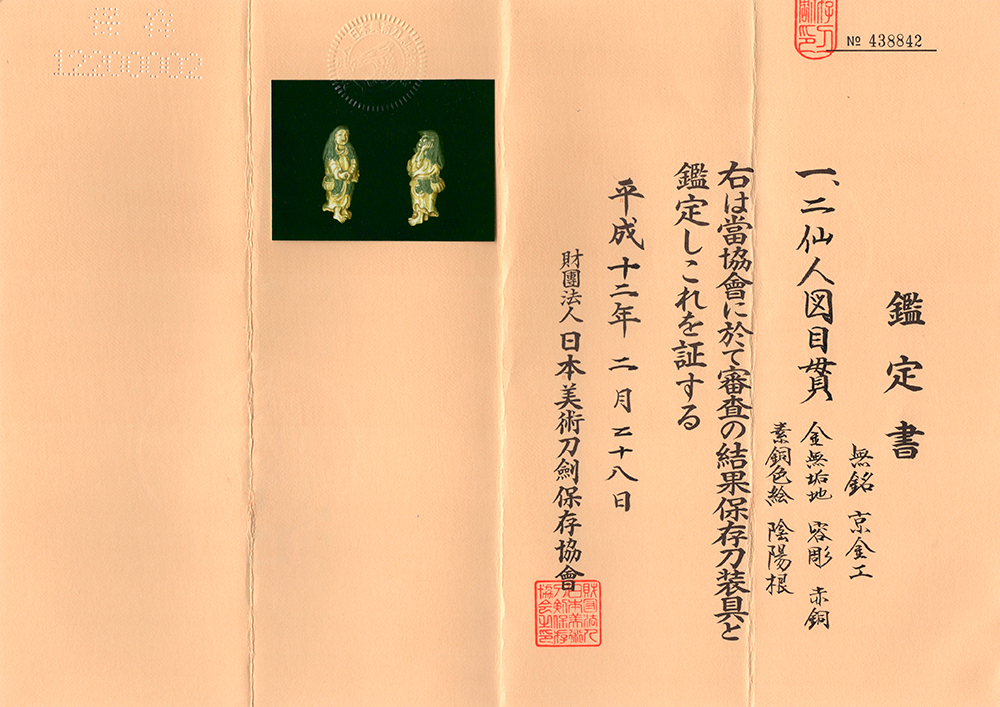 № 438842
鑑定書
一、二仙人図目貫
無銘 京金工
金無垢地 容彫 赤銅
素銅色絵 陰陽根
右は當協會に於て審査の結果保存刀装具と
鑑定しこれを証する
平成十二年 二月二十八日
財團法人日本美術刀劍保存協會
保存
12200002